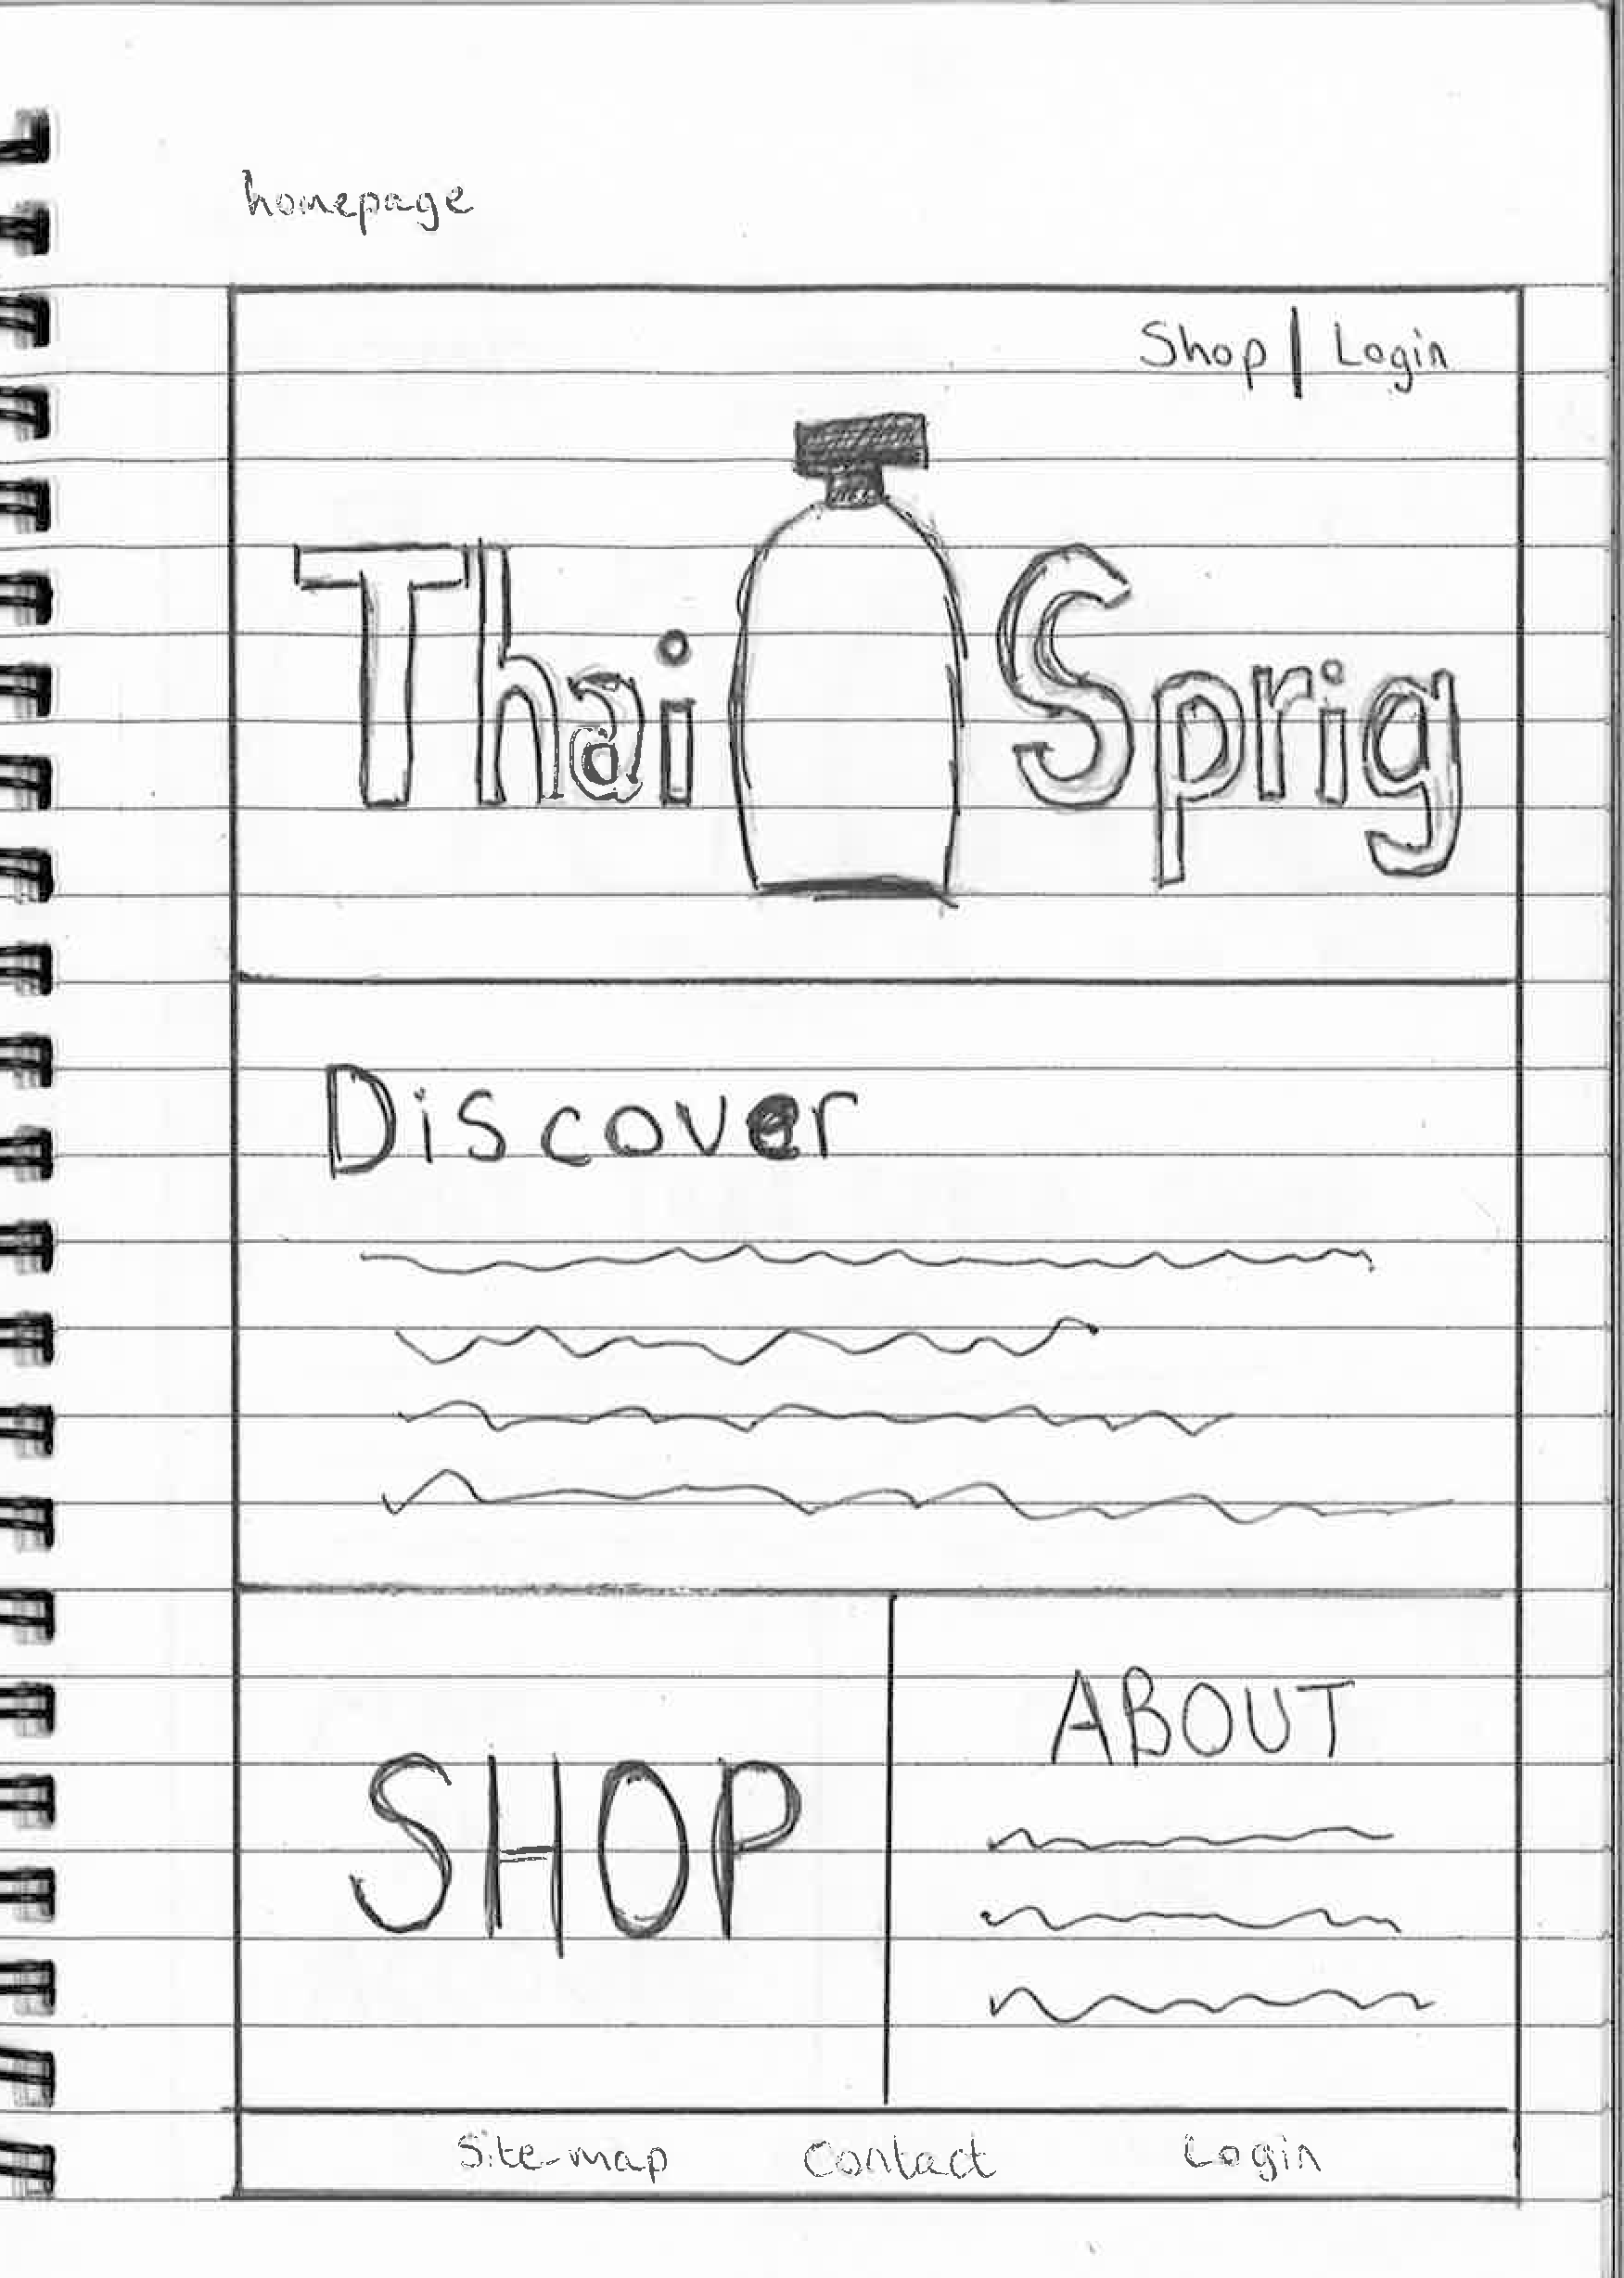 homepage
Shop | Login
Thai Sprig
Discover
SHOP
ABOUT
Site-map Contact Login